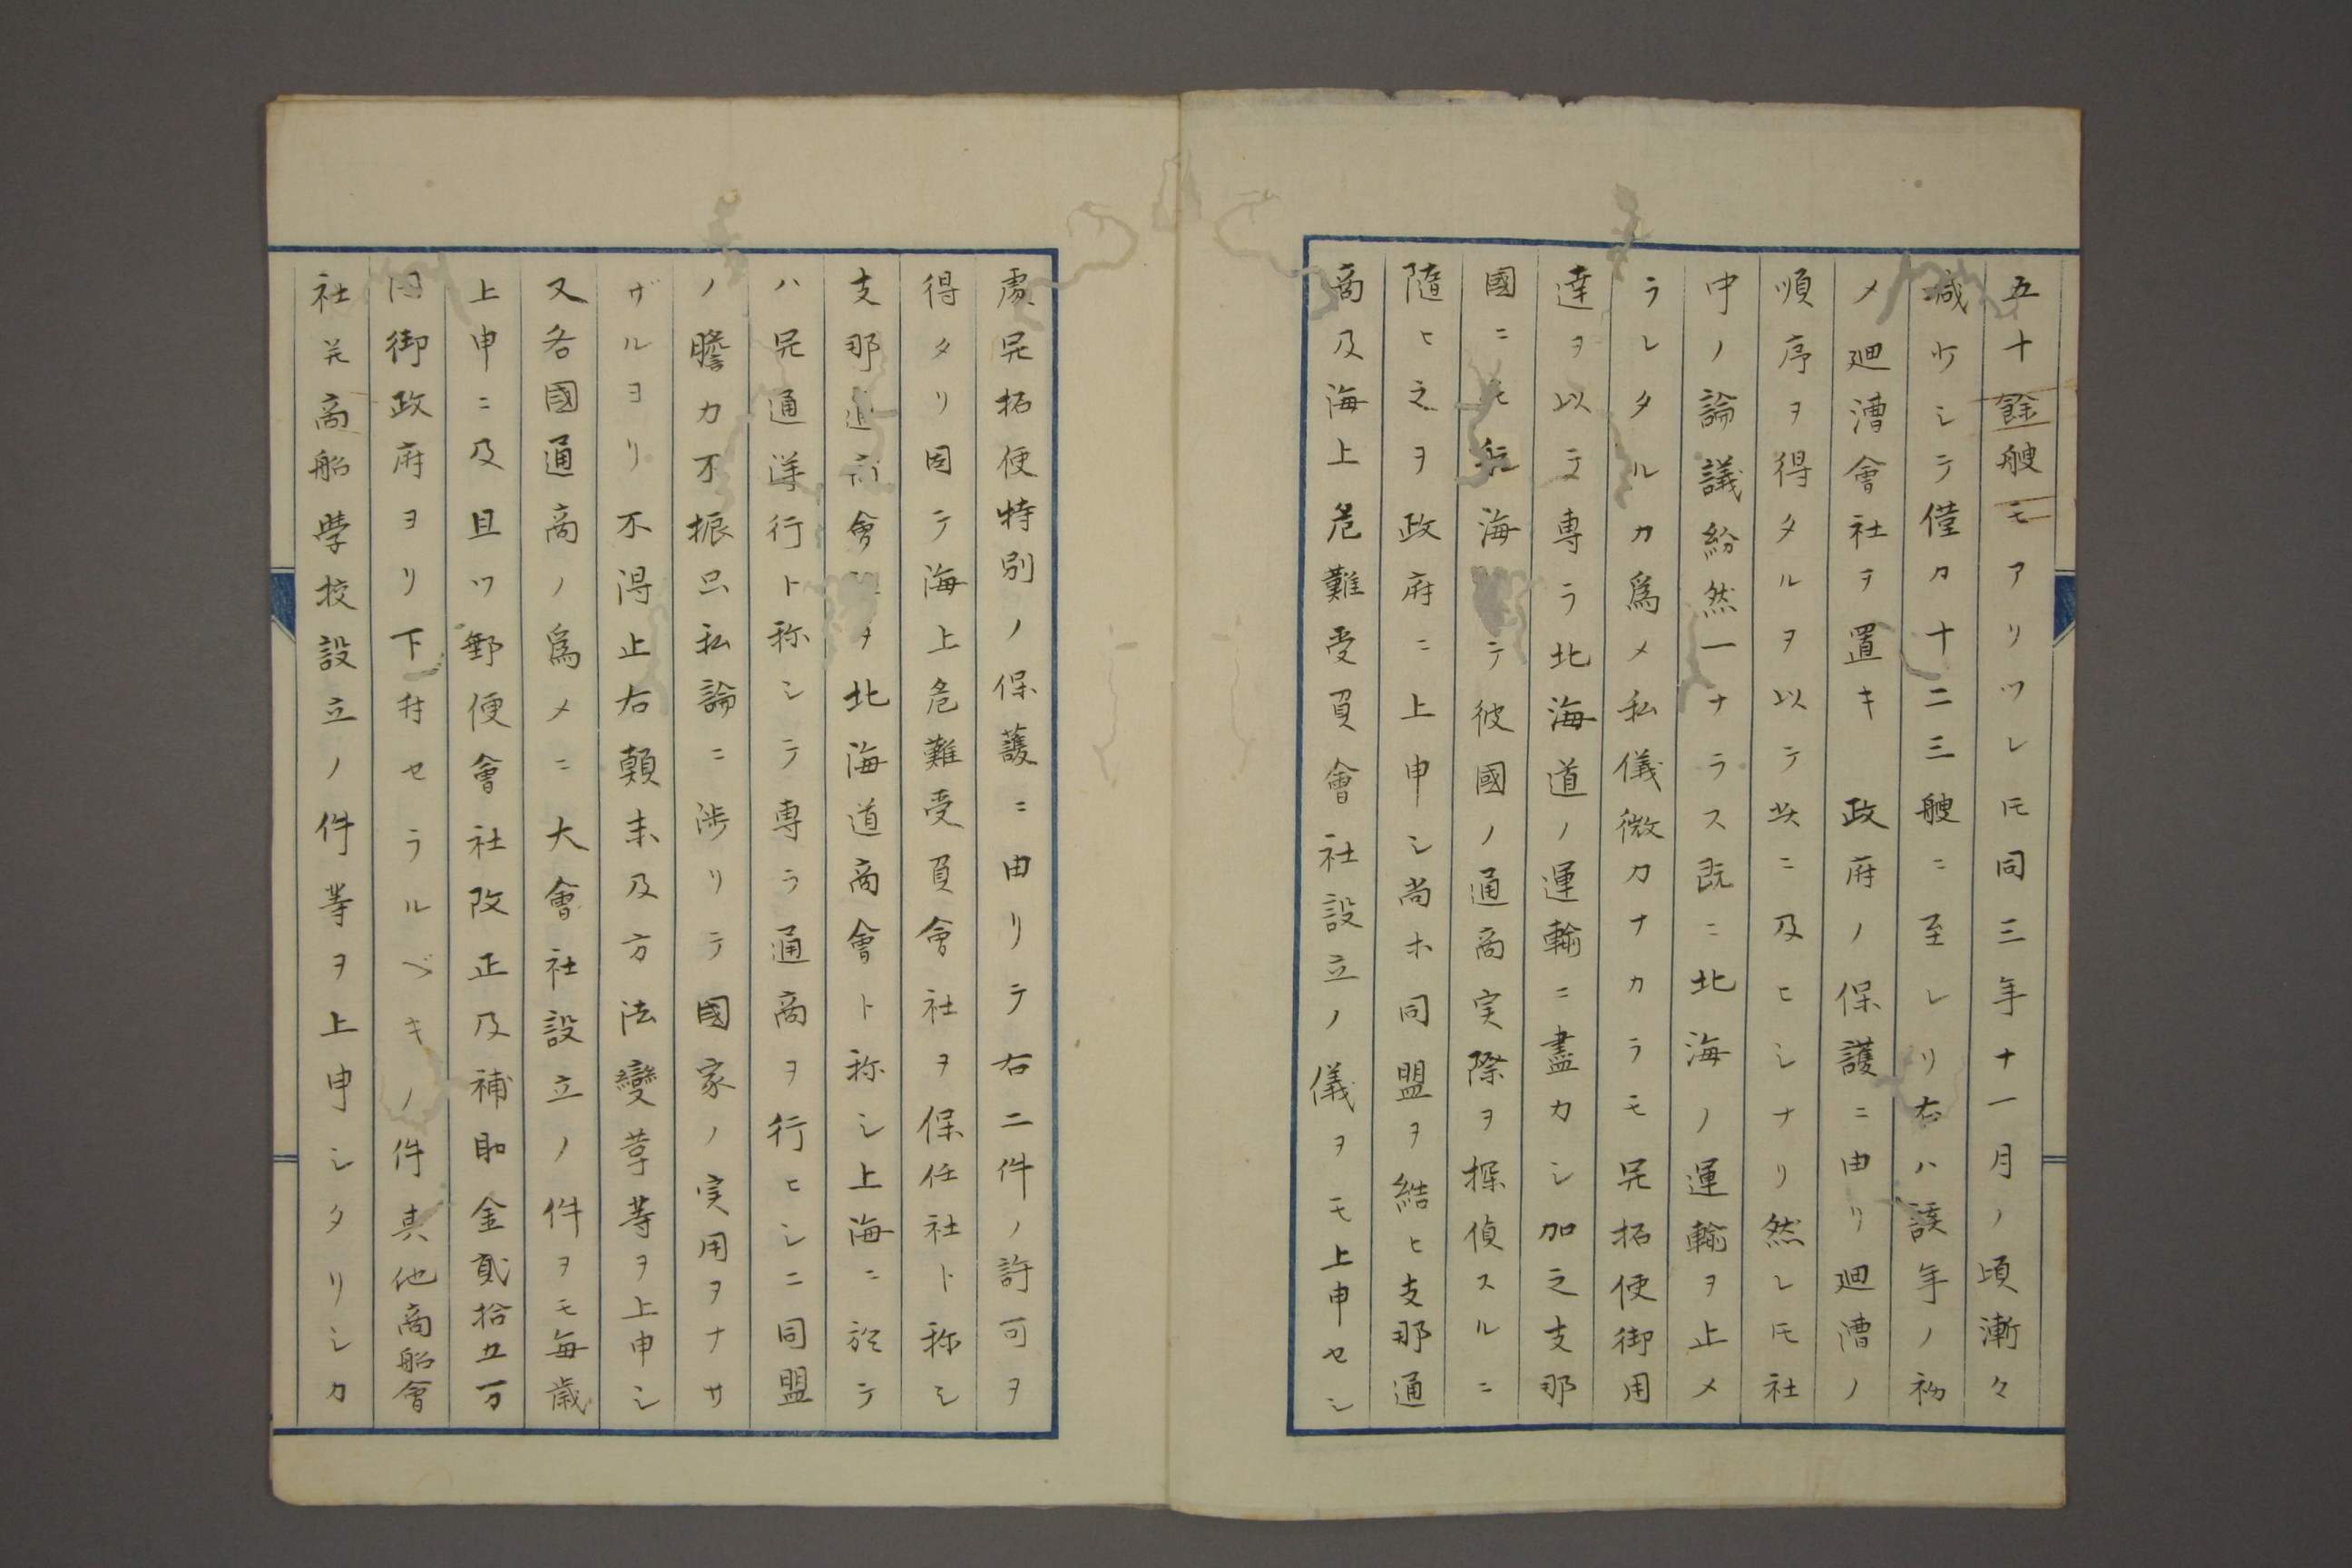 五十餘艘モアリツレ𪜈同三年十一月ノ頃漸々
減少シテ僅カ十二三艘ニ至レリ右ハ該年ノ初
メ廻漕會社ヲ置キ　政府ノ保護ニ由リ廻漕ノ
順序ヲ得タルヲ以テ茲ニ及ヒシナリ然レ𪜈社
中ノ論議紛然一ナラス既ニ北海ノ運輸ヲ止メ
ラレタルカ爲メ私儀微力ナカラモ開拓使御用
達ヲ以テ専ラ北海道ノ運輸ニ盡力シ加之支那
國ニモ航海シテ彼國ノ通商実際ヲ探偵スルニ
隨ヒ之ヲ政府ニ上申シ尚ホ同盟ヲ結ヒ支那通
商及海上危難受負會社設立ノ儀ヲモ上申セシ
處開拓使特別ノ保護ニ由リテ右二件ノ許可ヲ
得タリ因テ海上危難受負會社ヲ保任社ト称シ
支那通商會社ヲ北海道商會ト称シ上海ニ於テ
ハ開通洋行ト称シテ専ラ通商ヲ行ヒシニ同盟
ノ膽力不振只私論ニ渉リテ國家ノ実用ヲナサ
ザルヨリ不得止右顛末及方法變革等ヲ上申シ
又各國通商ノ爲メニ大會社設立ノ件ヲモ毎歳
上申ニ及且ツ郵便會社改正及補助金貳拾五万
円御政府ヨリ下付セラルベキノ件其他商船會
社并商船学校設立ノ件等ヲ上申シタリシカ